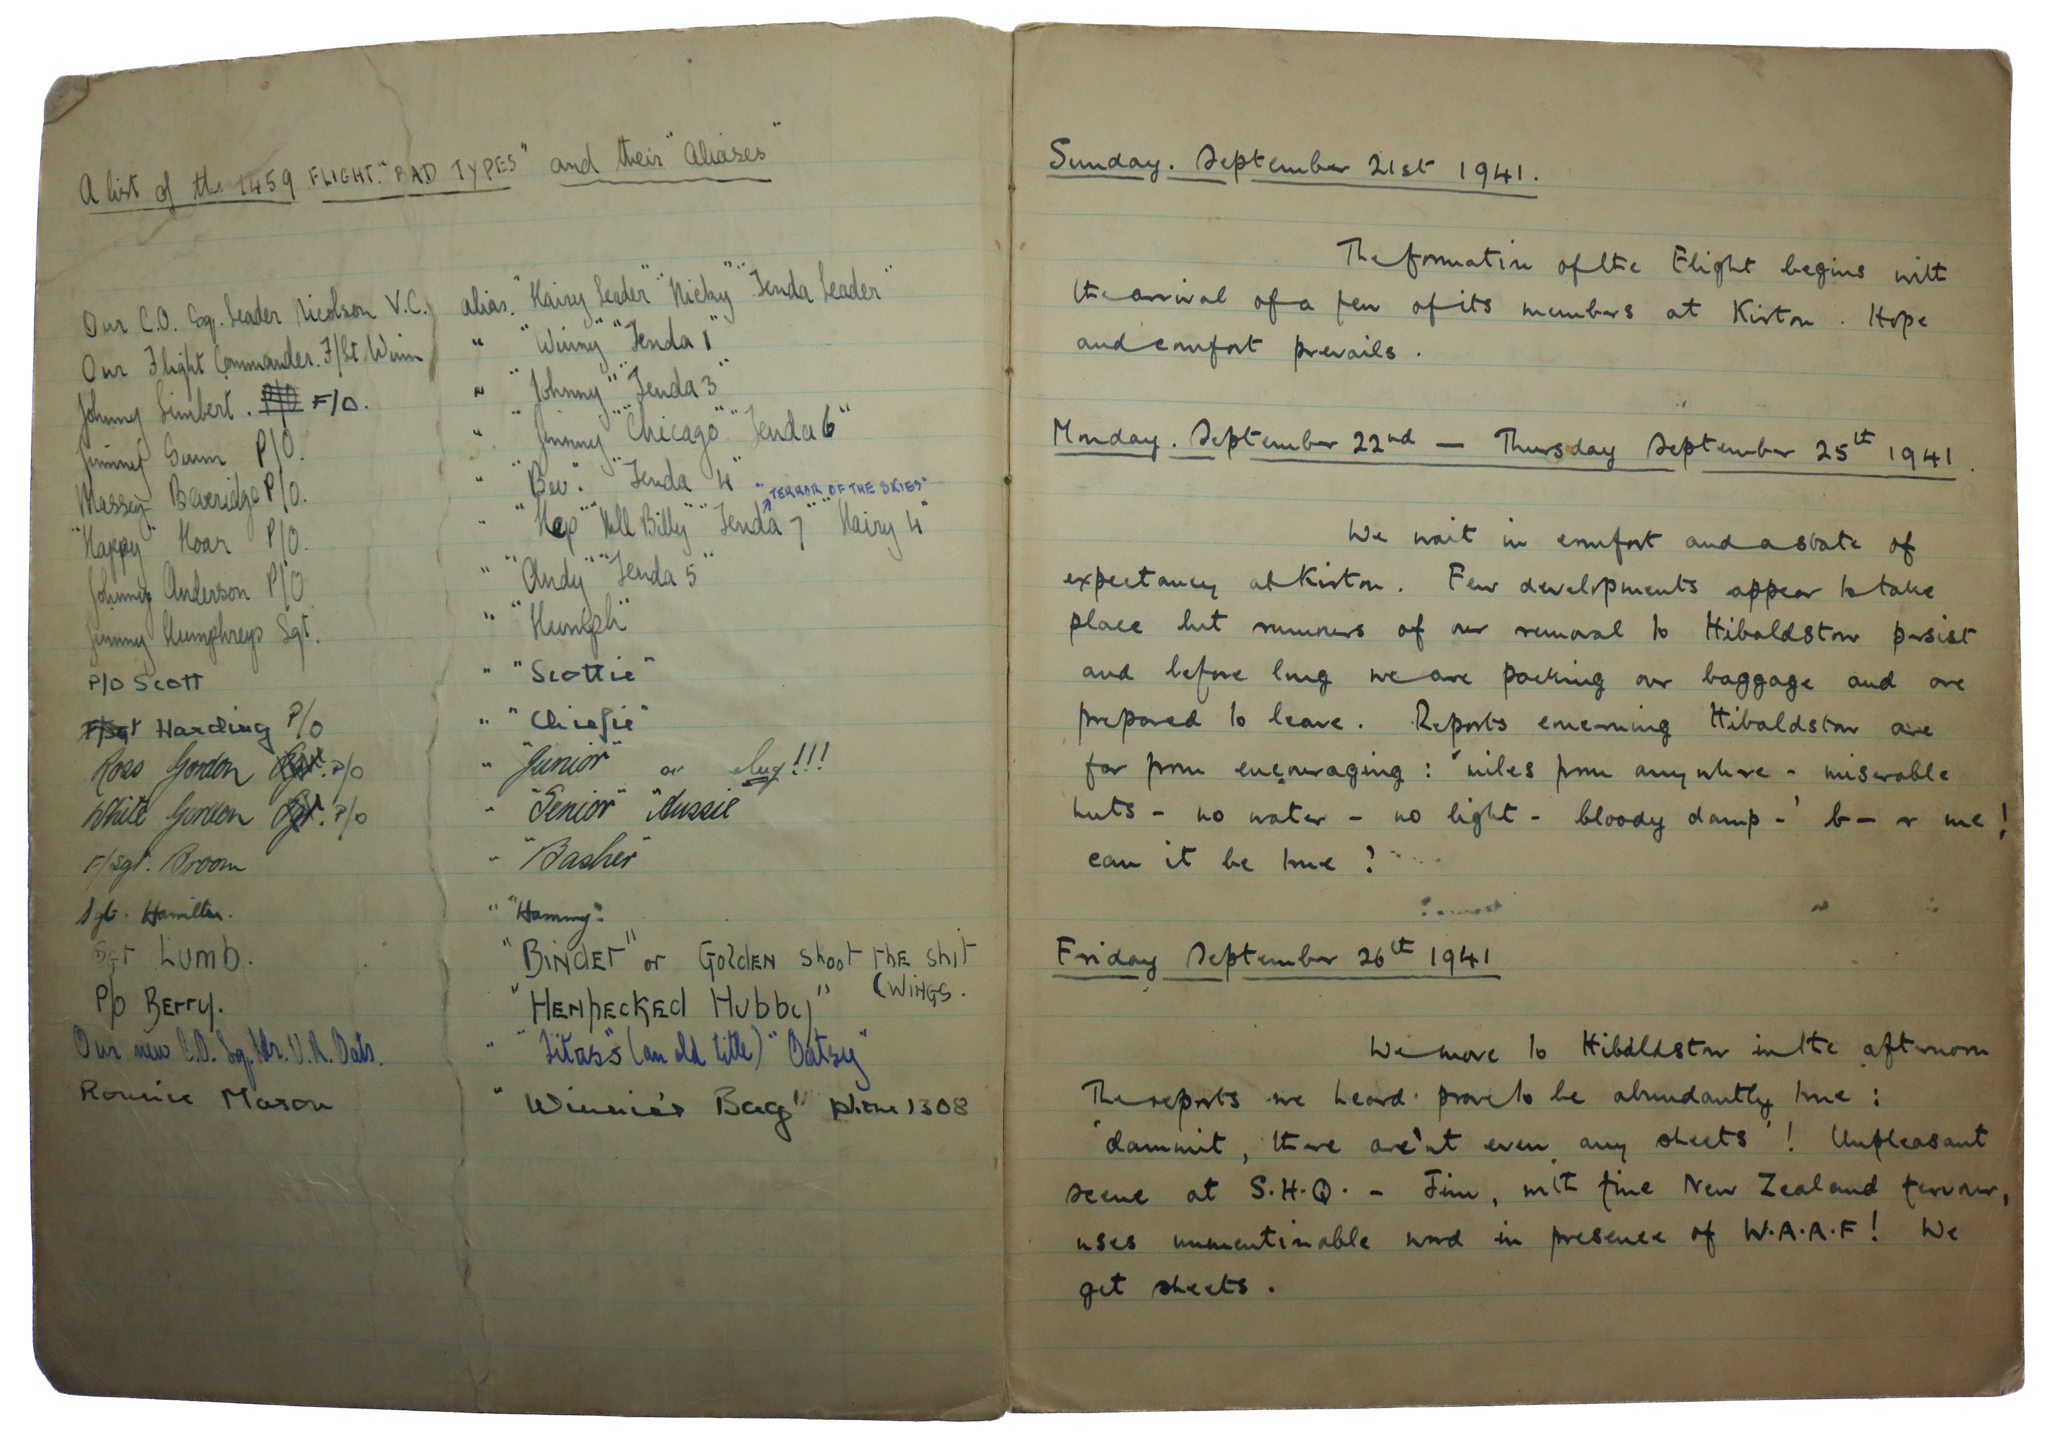 A list of the 1459 FLIGHT. "BAD TYPES" and their "Aliases"
Our C.O. Sq. Leader Nicolson V.C. alias. "Hairy Leader" "Nicky" "Tenda Leader"
Our Flight Commander. F/Lt. Winn " "Winny" "Tenda 1"
Johnny Limbert. P/O F/O. " "Johnny" "Tenda 3"
Jimmy Gunn P/O. " "Jimmy" "Chicago" "Tenda 6"
Massey Beveridge P/O. " "Bev". "Tenda 4"
"TERROR OF THE SKIES"
"Happy" Hoar P/O. " "Hap" "Hill Billy" "Tenda 7" "Hairy 4"
Johnny Anderson P/O " "Andy" "Tenda 5"
Jimmy Humphreys Sgt. " "Humph"
P/O Scott " "Scottie"
F/Sgt Harding P/O " "Chiefie"
Ross Gordon Sgt. P/O " "Junior" or !!!
White Gordon Sgt. P/O " "Senior" "Aussie"
F/Sgt. Broom " "Basher"
Sgt. Hamilton. " "Hammy".
Sgt Lumb. "BINDER" or GOLDEN SHOOT THE SHIT
(WINGS.
P/O BERRY. "HENPECKED HUBBY"
Our new C.O. Sq. Ldr. V.R. Oats. " (an old title) "Oatsy"
Ronnie Mason " Winnie's Bag" phone 1308
Sunday. September 21st 1941.
The formation of the Flight begins with
the arrival of a few of its members at Kirton. Hope
and comfort prevails.
Monday. September 22nd — Thursday September 25th 1941.
We wait in comfort and a state of
expectancy at Kirton. Few developments appear to take
place but rumours of our removal to Hibaldstow persist
and before long we are packing our baggage and are
prepared to leave. Reports concerning Hibaldstow are
far from encouraging: 'miles from anywhere - miserable
huts - no water - no light - bloody damp -' b—r me!
can it be true?
Friday September 26th 1941
We move to Hibaldstow in the afternoon
The reports we heard prove to be abundantly true:
'dammit, there are'nt even any sheets'! Unpleasant
scene at S.H.Q. - Jim, with fine New Zealand fervour,
uses unmentionable word in presence of W.A.A.F! We
get sheets.